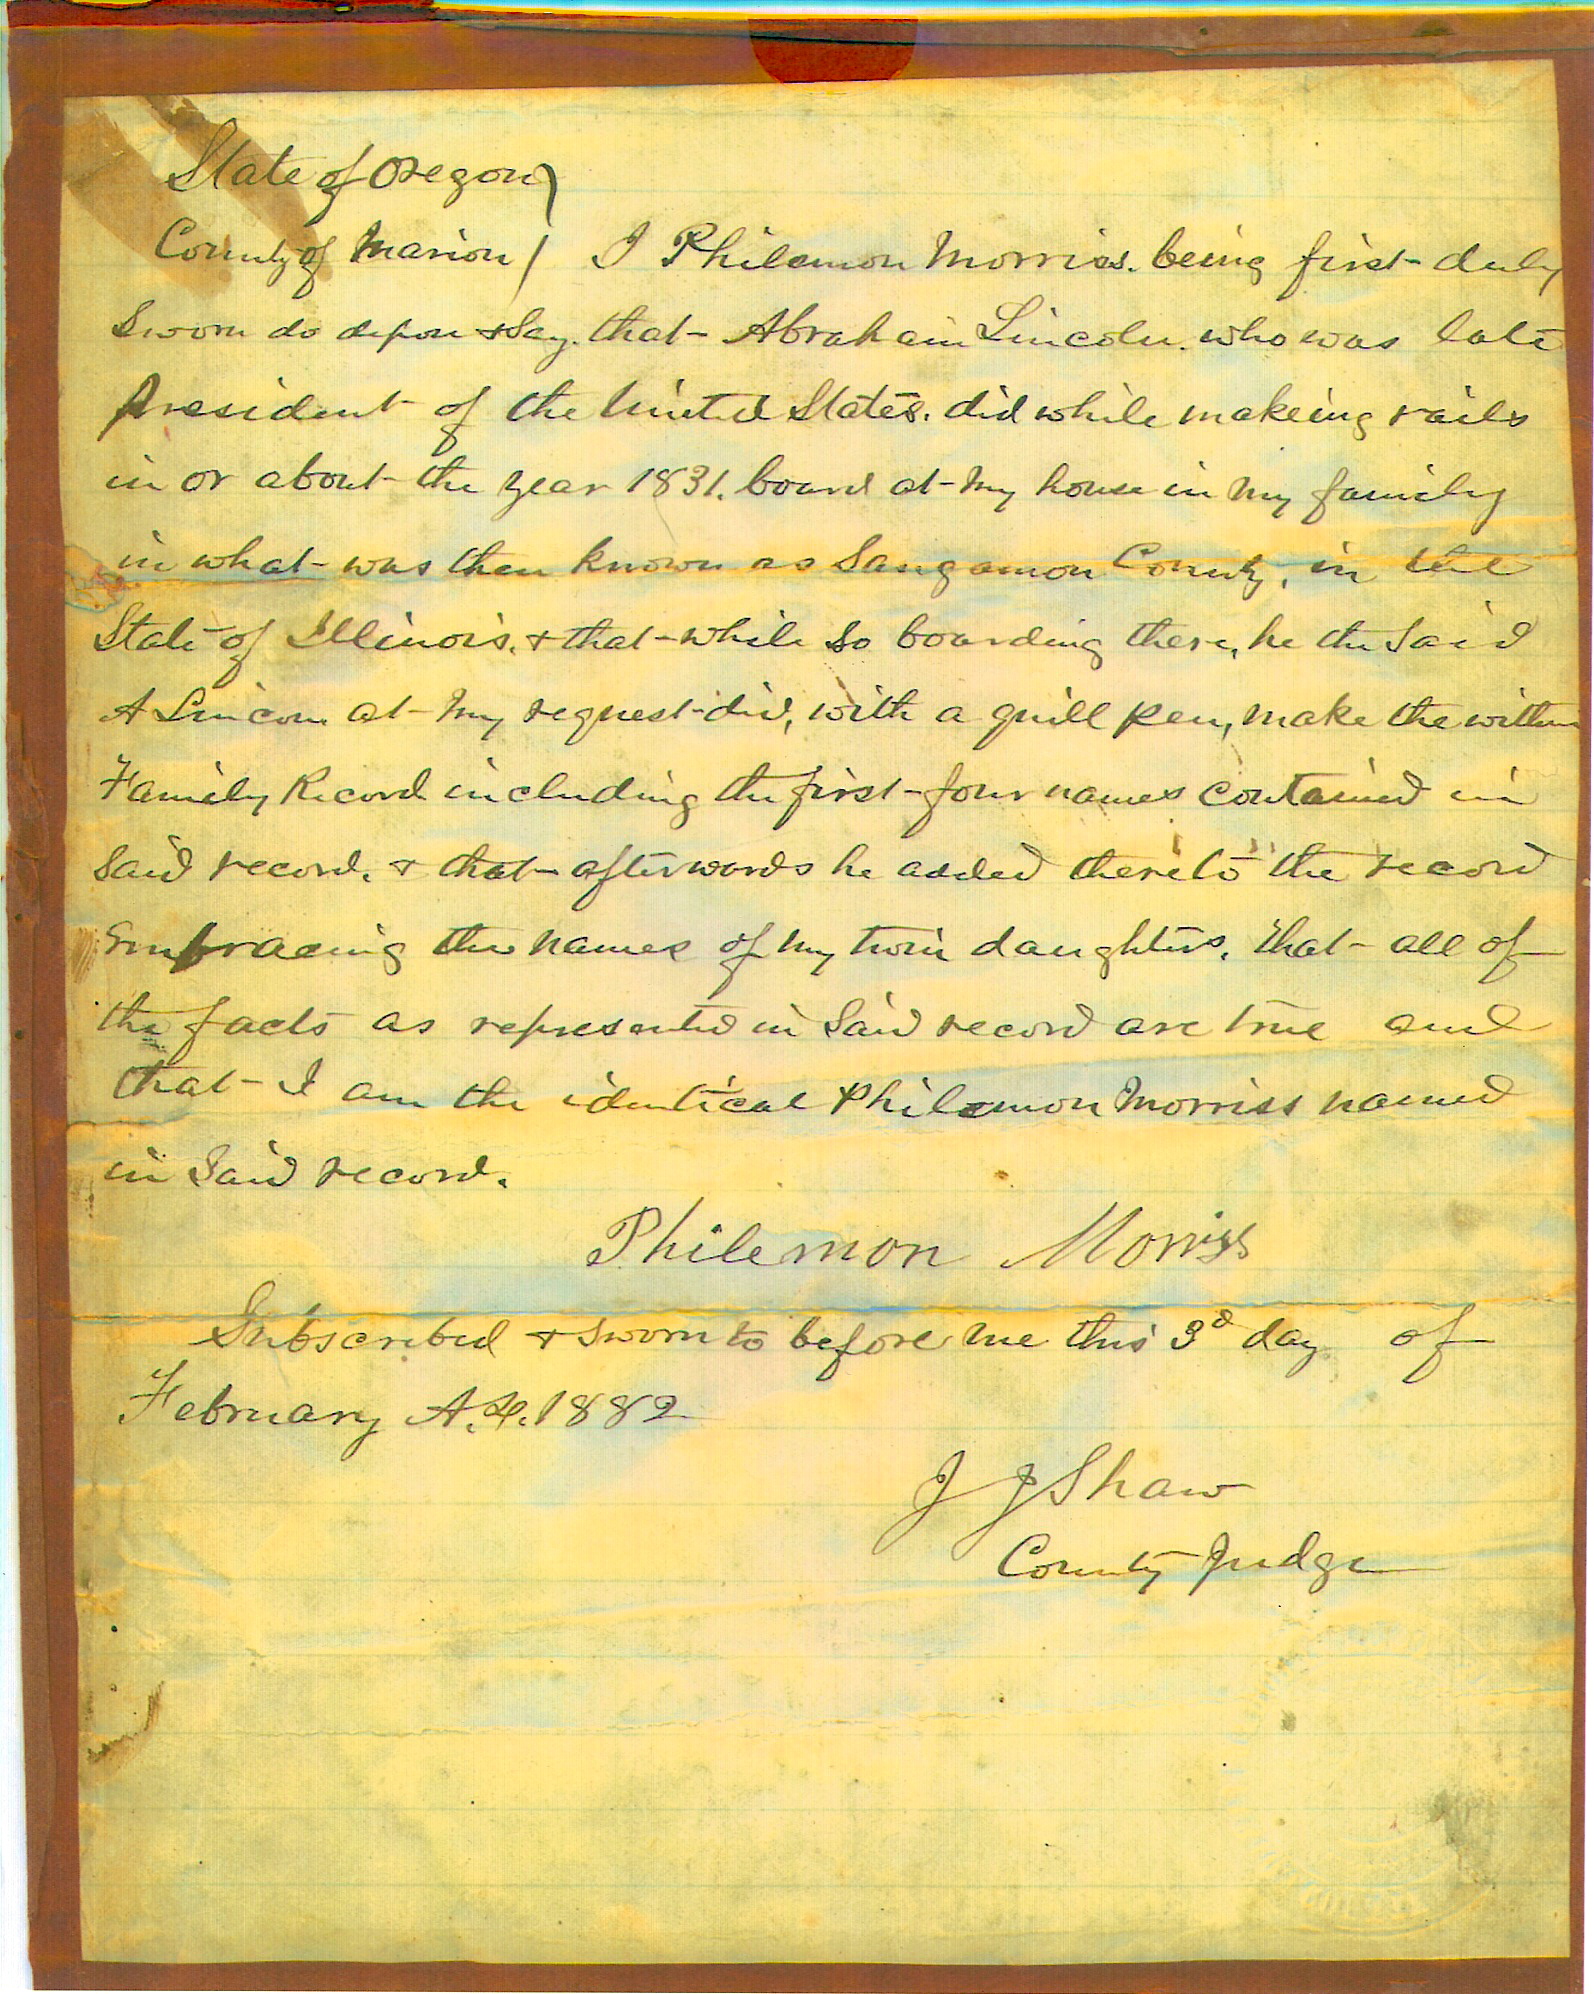 State of Oregon )
County of Marion ) I Philemon Morriss. being first duly
Sworn do depose & Say. that Abraham Lincoln. who was late
President of the United States. did while makeing rails
in or about the year 1831. board at my house in my family
in what was then known as Sangamon County, in the
State of Illinois. & that while so boarding there, he the Said
A Lincoln at my request did, with a quill pen, make the within
Family Record including the first four names contained in
Said record. & that afterwords he added thereto the record
Embraceing the names of my twin daughters. that all of
the facts as represented in Said record are true and
that I am the identical Philemon Morriss named
in Said record.
Philemon Morriss
Subscribed & Sworn to before me this 3d day of
February A.D. 1882
J J Shaw
County Judge